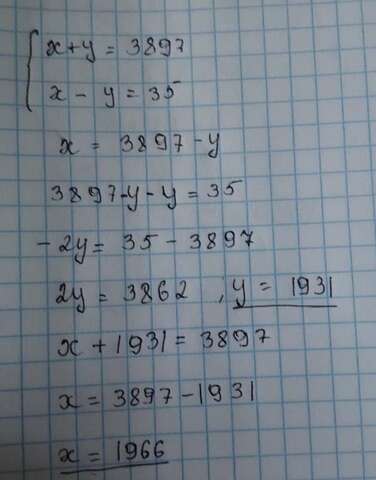 x + y = 3897
x - y = 35
x = 3897 - y
3897 - y - y = 35
- 2y = 35 - 3897
2y = 3862 , y = 1931
x + 1931 = 3897
x = 3897 - 1931
x = 1966